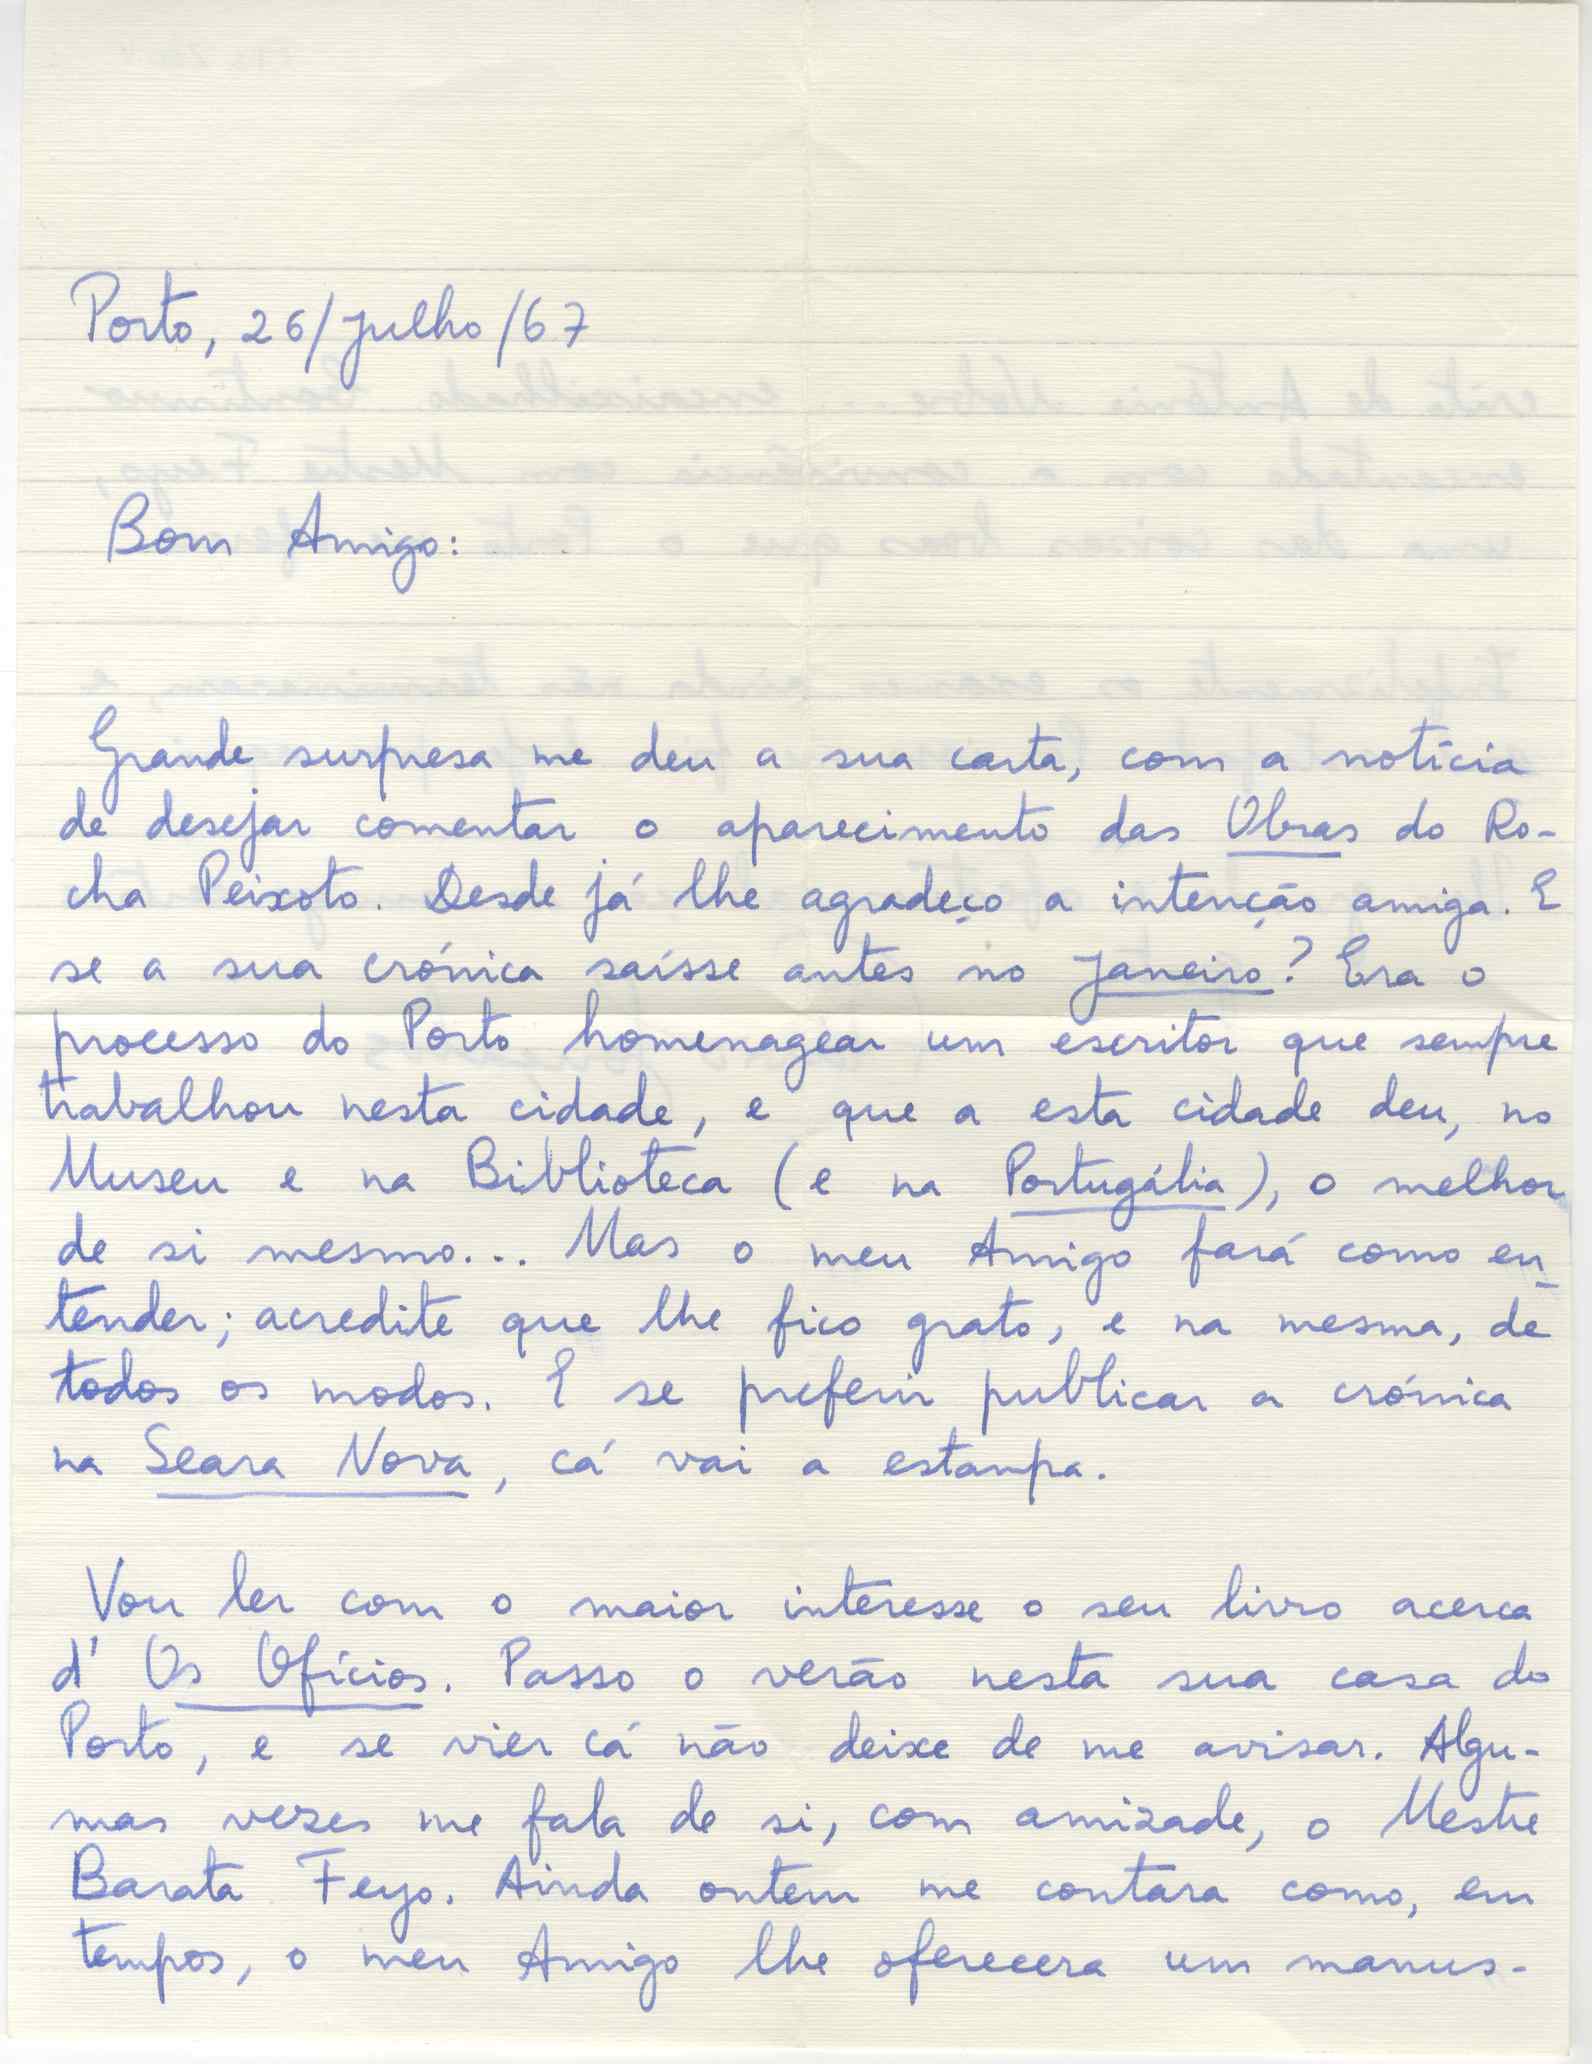 Porto, 26/julho/67
Bom Amigo:
Grande surpresa me deu a sua carta, com a notícia
de desejar comentar o aparecimento das Obras do Ro-
cha Peixoto. Desde já lhe agradeço a intenção amiga. E
se a sua crónica saísse antes no Janeiro? Era o
processo do Porto homenagear um escritor que sempre
trabalhou nesta cidade, e que a esta cidade deu, no
Museu e na Biblioteca (e na Portugália), o melhor
de si mesmo... Mas o meu Amigo fará como en-
tender; acredite que lhe fico grato, e na mesma, de
todos os modos. E se preferir publicar a crónica
na Seara Nova, cá vai a estampa.
Vou ler com o maior interesse o seu livro acerca
d' Os Ofícios. Passo o verão nesta sua casa do
Porto, e se vier cá não deixe de me avisar. Algu-
mas vezes me fala de si, com amizade, o Mestre
Barata Feyo. Ainda ontem me contara como, em
tempos, o meu Amigo lhe oferecera um manus-